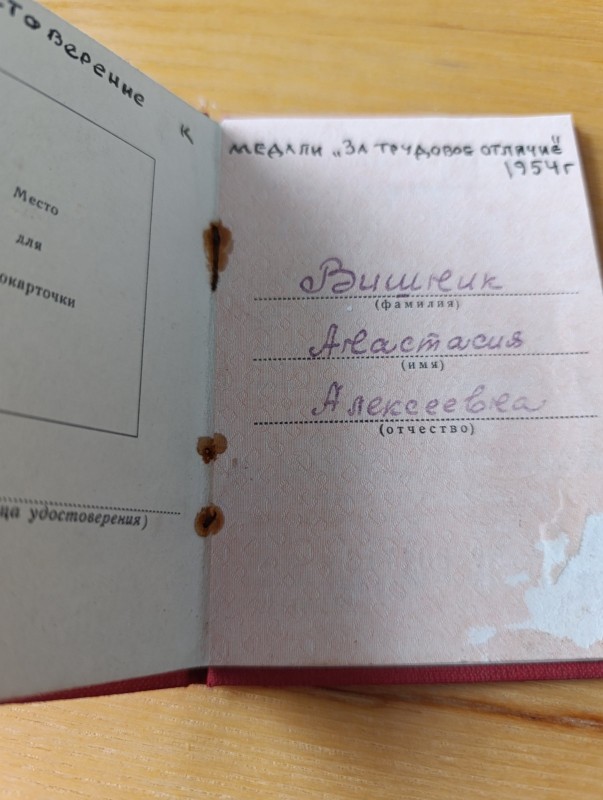 товерение к
Место
для
окарточки
ца удостоверения)
МЕДАЛИ „ЗА ТРУДОВОЕ ОТЛИЧИЕ"
1954 г
Вишник
(фамилия)
Анастасия
(имя)
Алексеевна
(отчество)